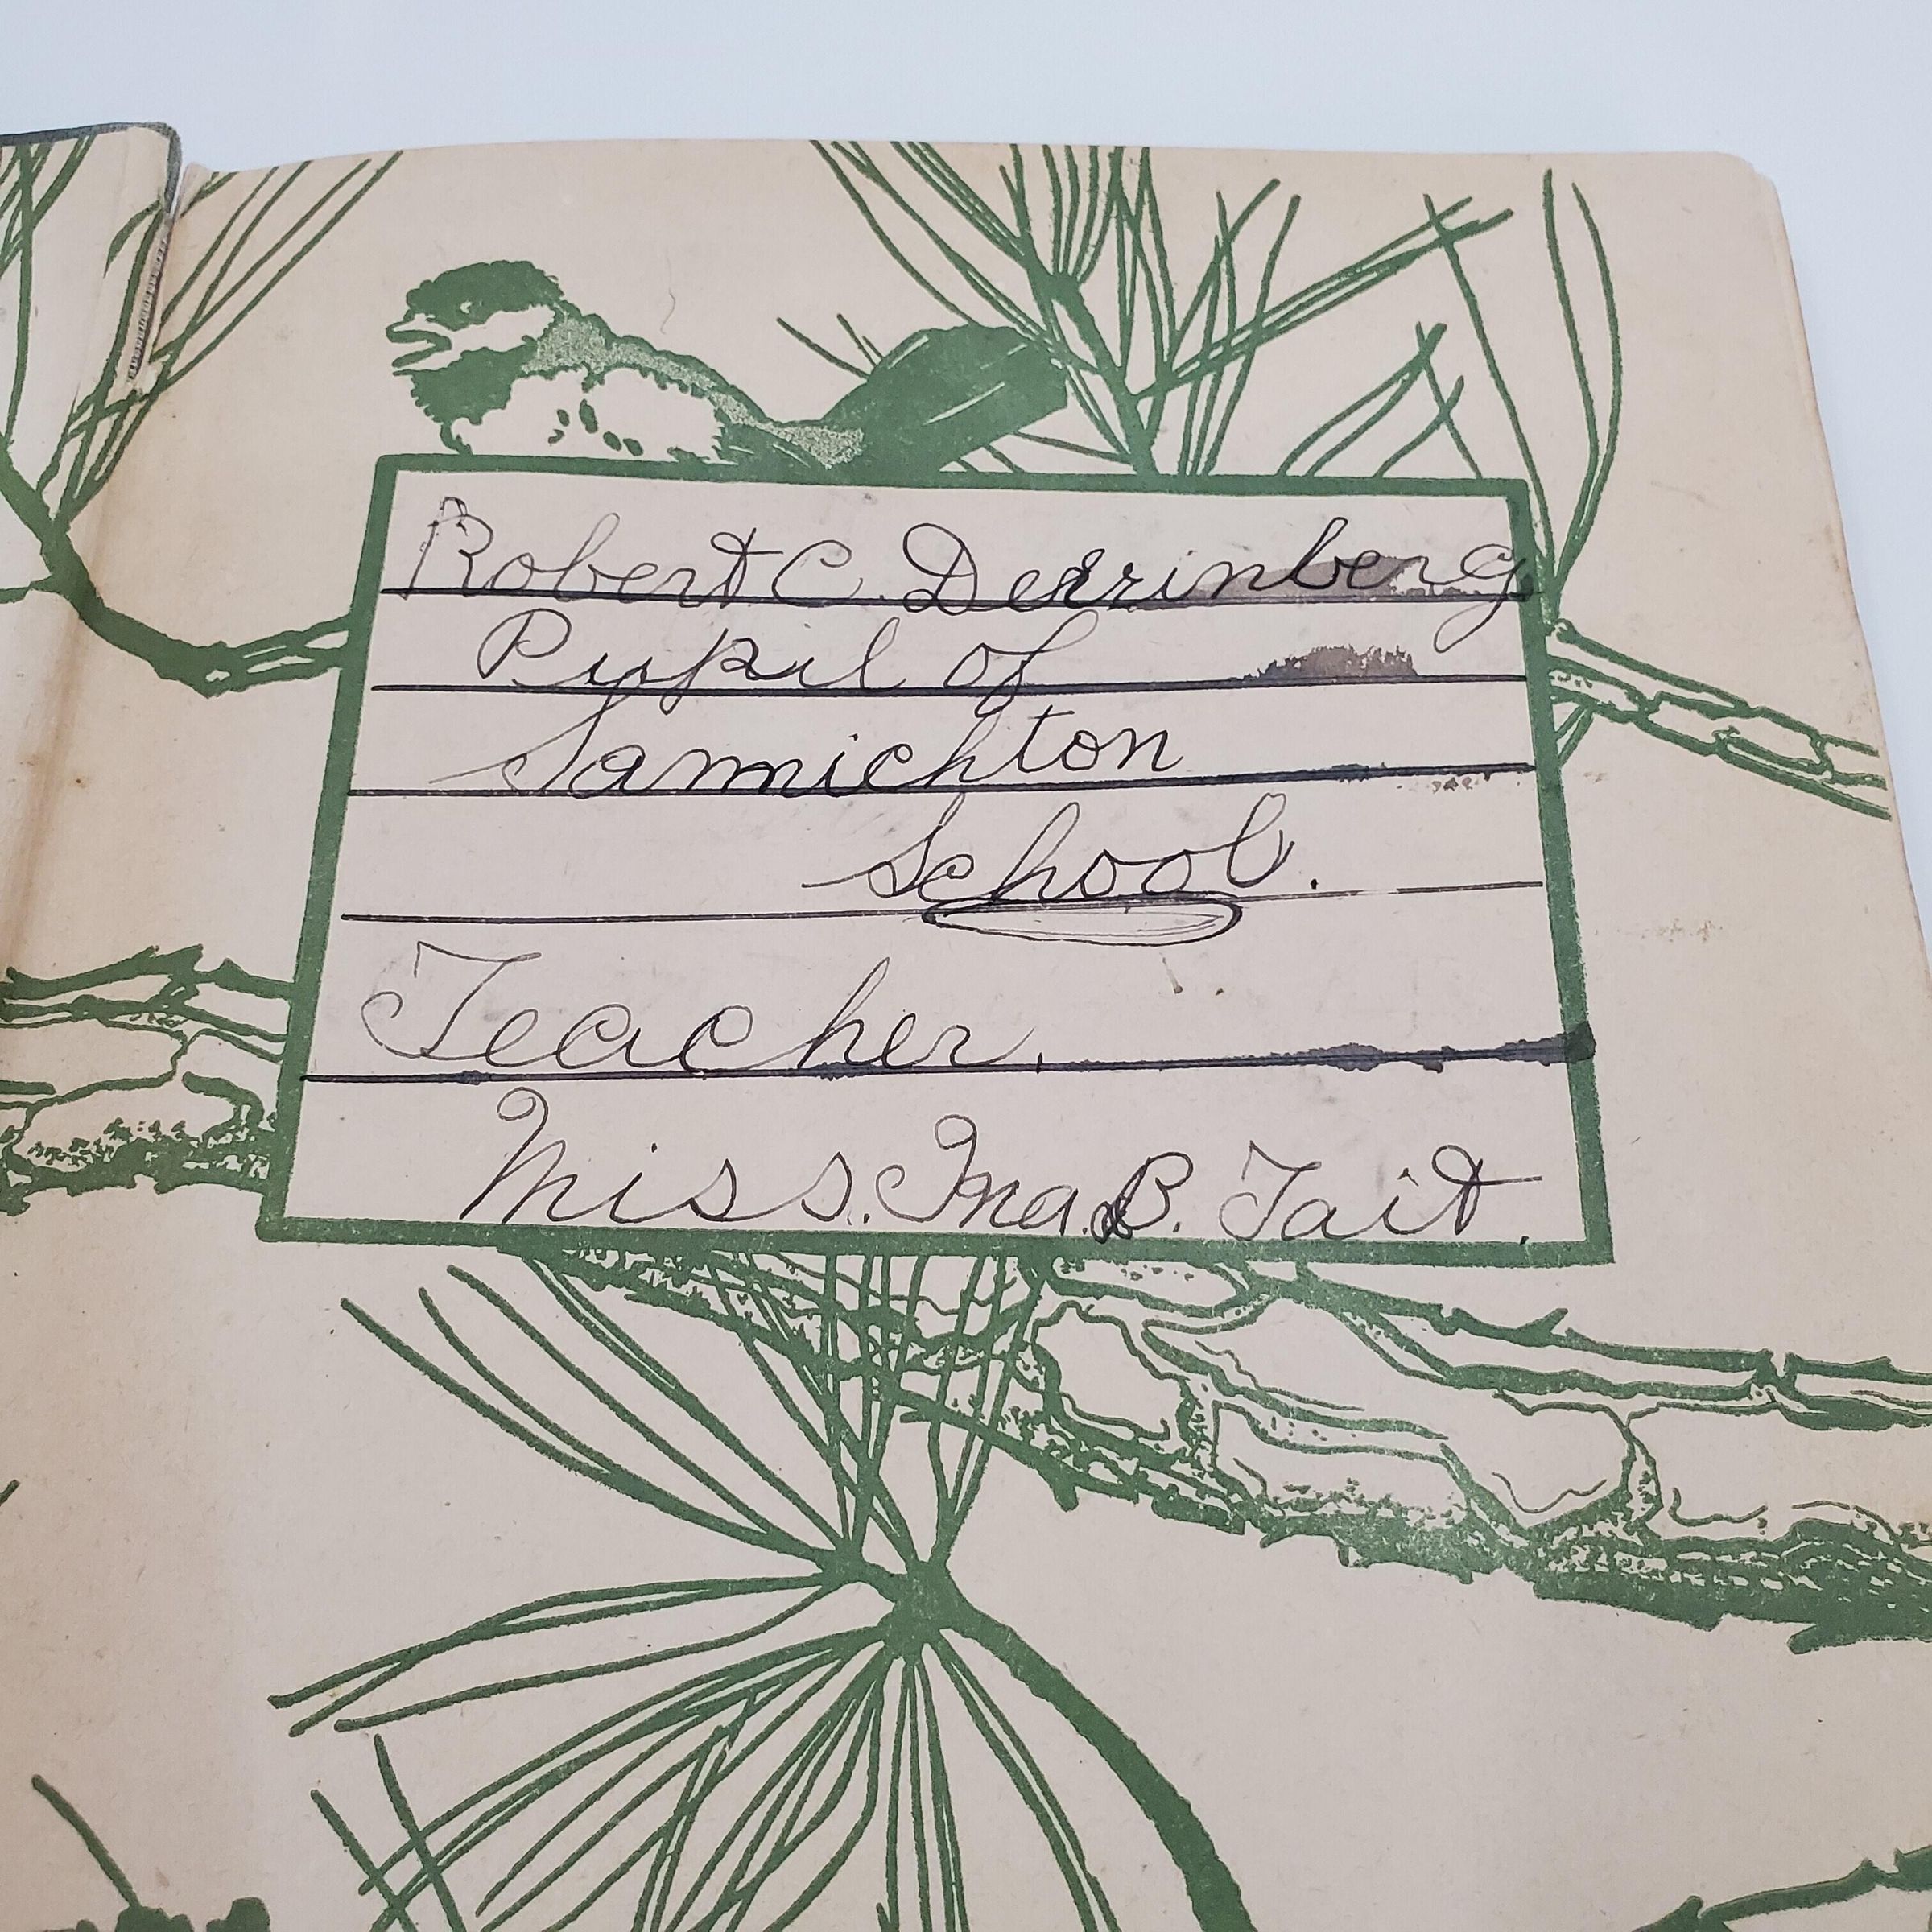 Robert C. Derrinberg
Pupil of
Sannichton
School.
Teacher.
Miss. Ina. B. Tait.